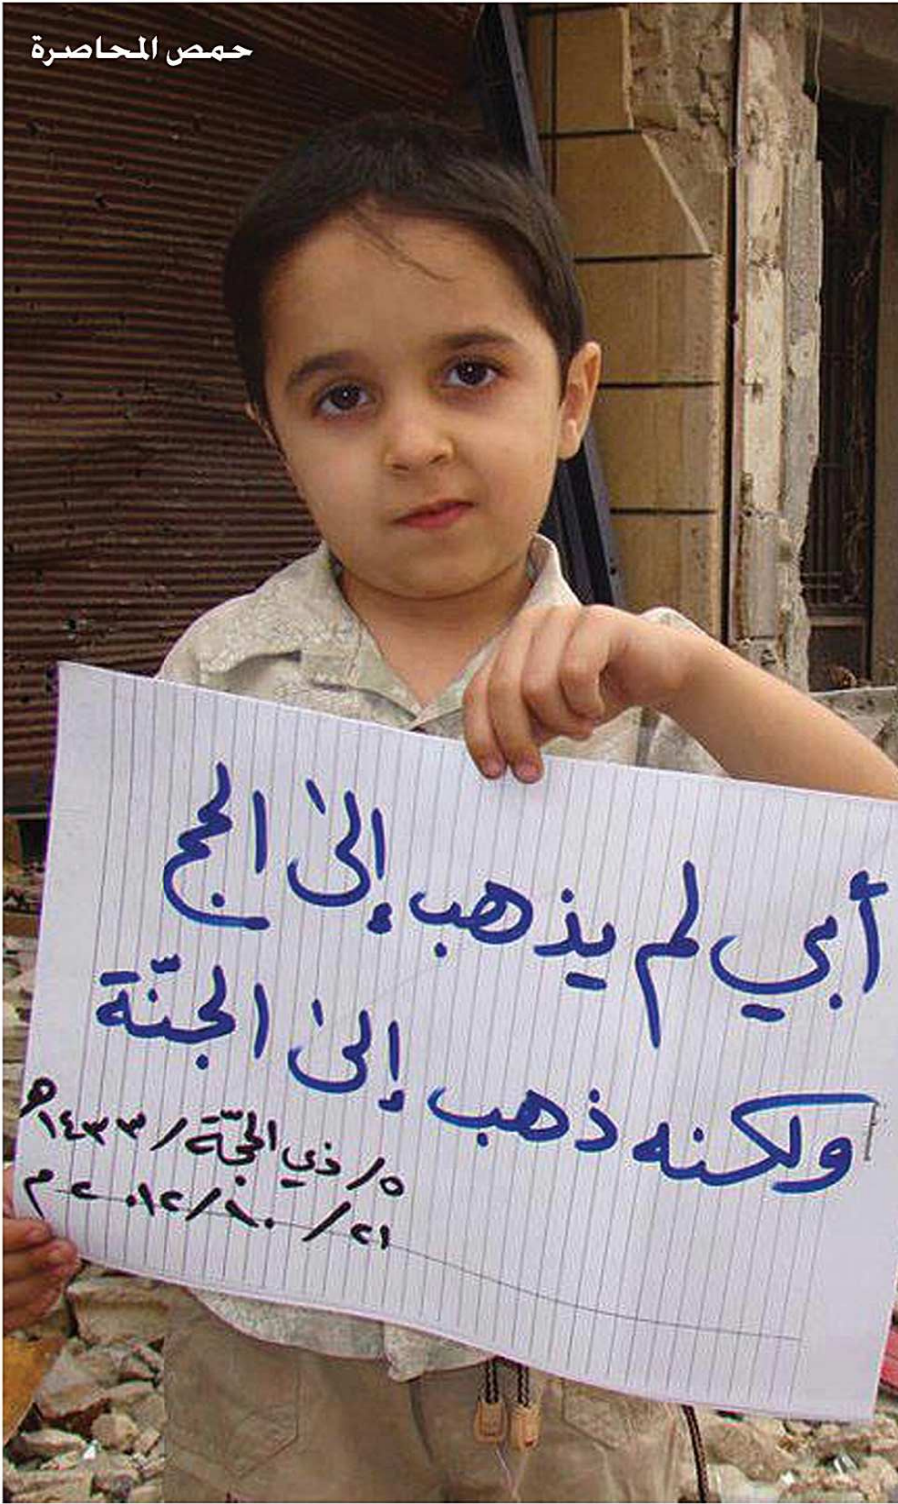 حمص المحاصرة
أبي لم يذهب إلىٰ الحج
ولكنه ذهب إلىٰ الجنّة
٥/ ذي الحجّة / ١٤٣٣ه
٢١/ ١٠/ ٢٠١٢م